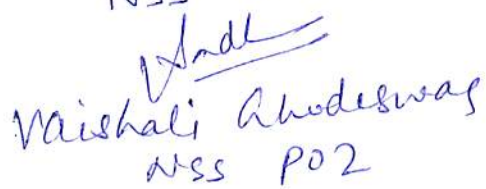 NSS
Vaishali Ghodeswar
NSS PO2